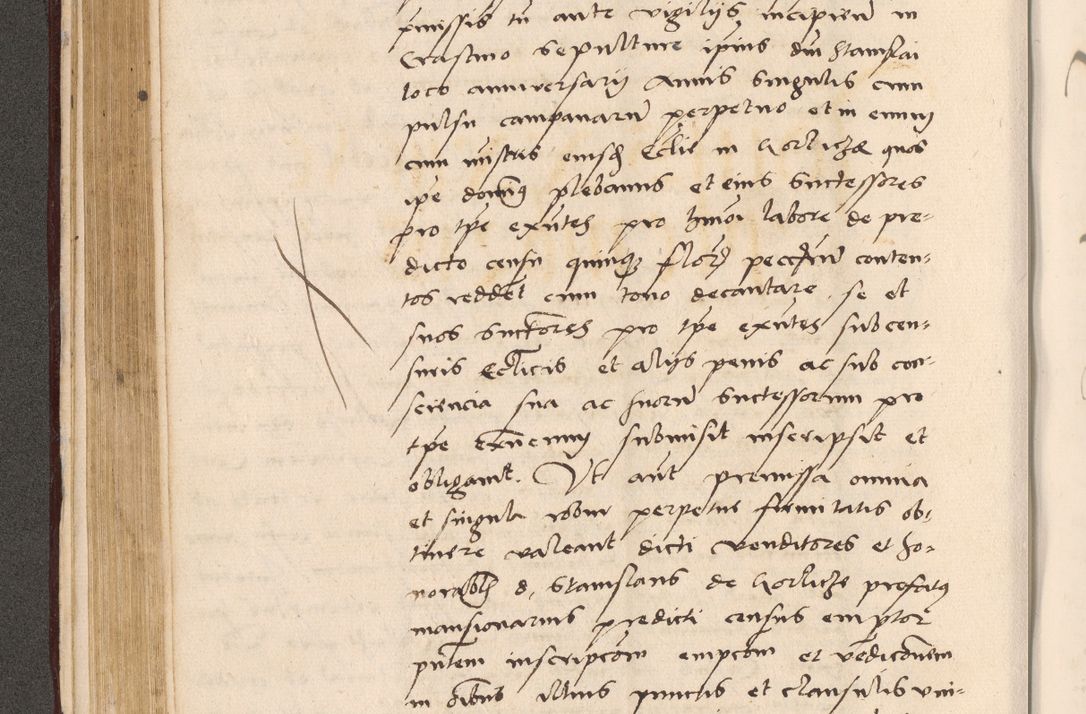 pmissis tn ante vigilijs incipien in
Crastino sepulture ipius dni Stanislai
loco anniversarij Annis singulis cum
pulsu campanaru perpetuo et in euum
cum mistris eiusd Eclie in Gorlicze quos
ipe dominus plebanus et eius Successores
pro tpe exntes pro hmoi labore de pre-
dicto censu quinque flor peccunie conten-
tos reddet cum tono decantare, se et
suos Successores pro tpe exntes sub cen-
suris Eccliticis et alijs penis ac sub con-
sciencia sua ac suoru Successorum pro
tpe exnencium submisit inscripsit et
obligavit. Ut aut premissa omnia
et singula robur perpetue firmitatis ob-
tinere valeant dicti venditores et ho-
norabilis d. Stanislaus de Gorlicze prefatus
mansionarius predicti census emptor
pntem inscripcom empcom et vedicionem
in oibus illius punctis et clausulis vni-